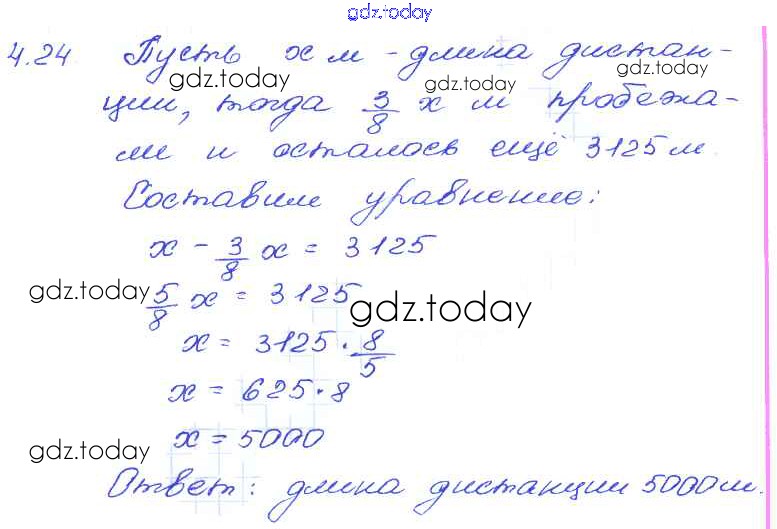 gdz.today
4.24 Пусть x м - длина дистан-
gdz.today gdz.today gdz.today
ции, тогда 3/8 x м пробежа-
ли и осталось ещё 3125 м.
Составим уравнение:
x - 3/8 x = 3125
gdz.today
5/8 x = 3125
gdz.today
x = 3125 · 8/5
x = 625 · 8
x = 5000
gdz.today gdz.today
Ответ: длина дистанции 5000 м.